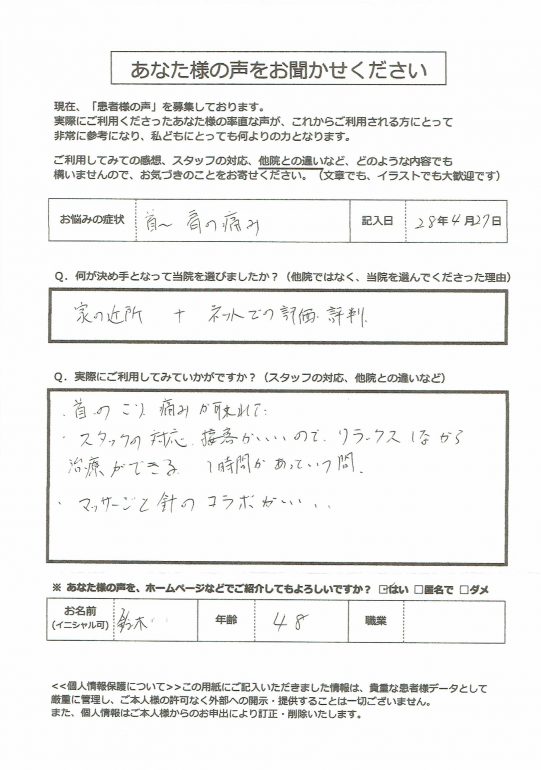 あなた様の声をお聞かせください
現在、「患者様の声」を募集しております。
実際にご利用くださったあなた様の率直な声が、これからご利用される方にとって
非常に参考になり、私どもにとっても何よりの力となります。
ご利用してみての感想、スタッフの対応、他院との違いなど、どのような内容でも
構いませんので、お気づきのことをお寄せください。（文章でも、イラストでも大歓迎です）
お悩みの症状 首〜肩の痛み 記入日 28年4月27日
Q．何が決め手となって当院を選びましたか？（他院ではなく、当院を選んでくださった理由）
家の近所 + ネットでの評価・評判.
Q．実際にご利用してみていかがですか？（スタッフの対応、他院との違いなど）
・首のこり 痛みが取れた
・スタッフの対応、接客がいいので、リラックスしながら
治療ができる 1時間があっという間.
・マッサージと針のコラボがいい...
※ あなた様の声を、ホームページなどでご紹介してもよろしいですか？ ☑はい □匿名で □ダメ
お名前
(イニシャル可) 鈴木 年齢 48 職業
<<個人情報保護について>>この用紙にご記入いただきました情報は、貴重な患者様データとして
厳重に管理し、ご本人様の許可なく外部への開示・提供することは一切ございません。
また、個人情報はご本人様からのお申出により訂正・削除いたします。